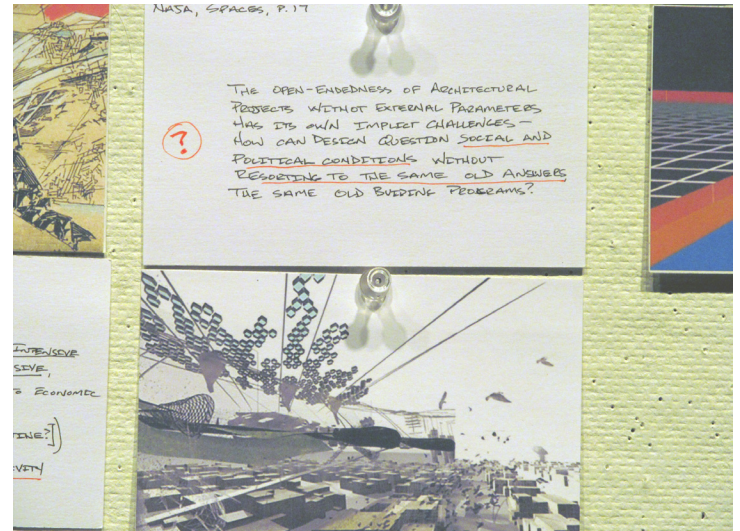 NAJA, SPACES, P.17
THE OPEN-ENDEDNESS OF ARCHITECTURAL
PROJECTS WITHOT EXTERNAL PARAMETERS
HAS ITS OWN IMPLICT CHALLENGES —
HOW CAN DESIGN QUESTION SOCIAL AND
POLITICAL CONDITIONS WITHOUT
RESORTING TO THE SAME OLD ANSWERS,
THE SAME OLD BUIDING PROGRAMS?
?
INTENSIVE
SIVE,
O ECONOMIC
TINE?])
VITY